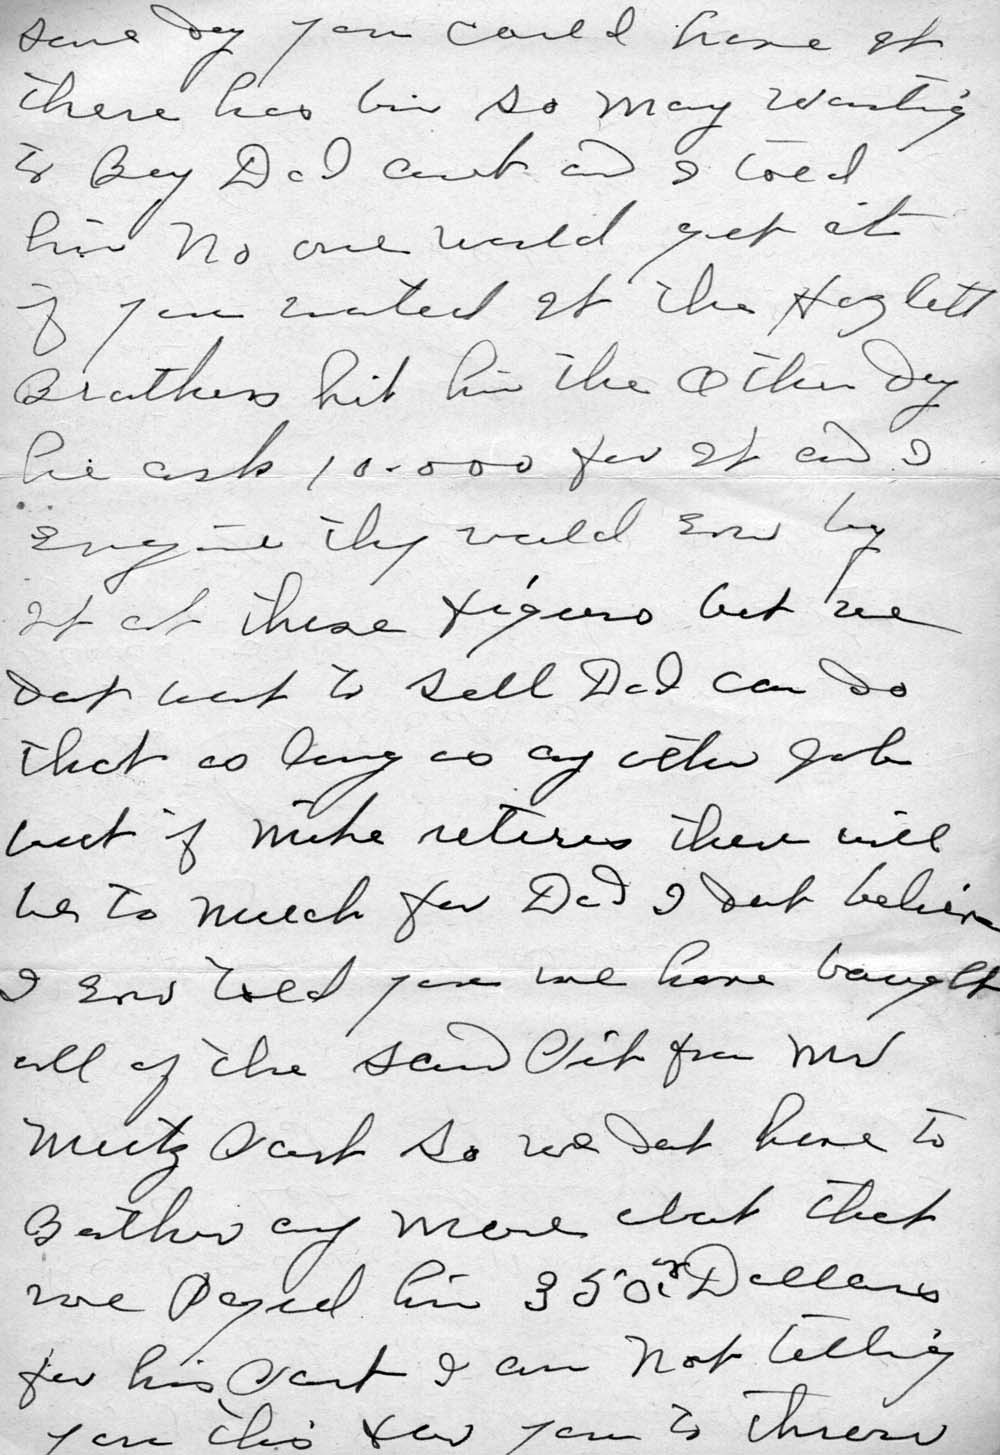 some Day you could have it
there has bin so Many wanting
to Buy Dad out and I told
him No one would get it
if you wanted it the Hazlett
Brothers hit him the Other Day
he ask 10.000 for it and I
Engine they would Ever by
it at these figuers but we
dont want to sell Dad can do
that as long as any other Job
but if Mike retires then will
be to Much for Dad I dont believe
I Ever told you we have baught
all of the sand Pit from Mr
Muitz Part So we dont have to
Bother any More about that
we Payed him 350.00 Dollars
for his Part I am Not telling
you this for you to throw